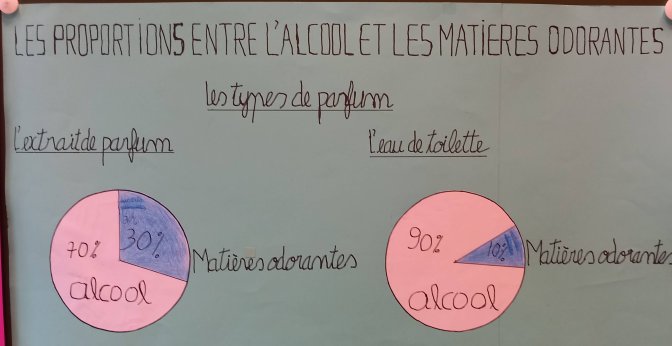 LES PROPORTIONS ENTRE L'ALCOOL ET LES MATIERES ODORANTES
les types de parfum
L'extrait de parfum
l'eau de toilette
30%
70%
Matières odorantes
alcool
90%
10%
Matières odorantes
alcool